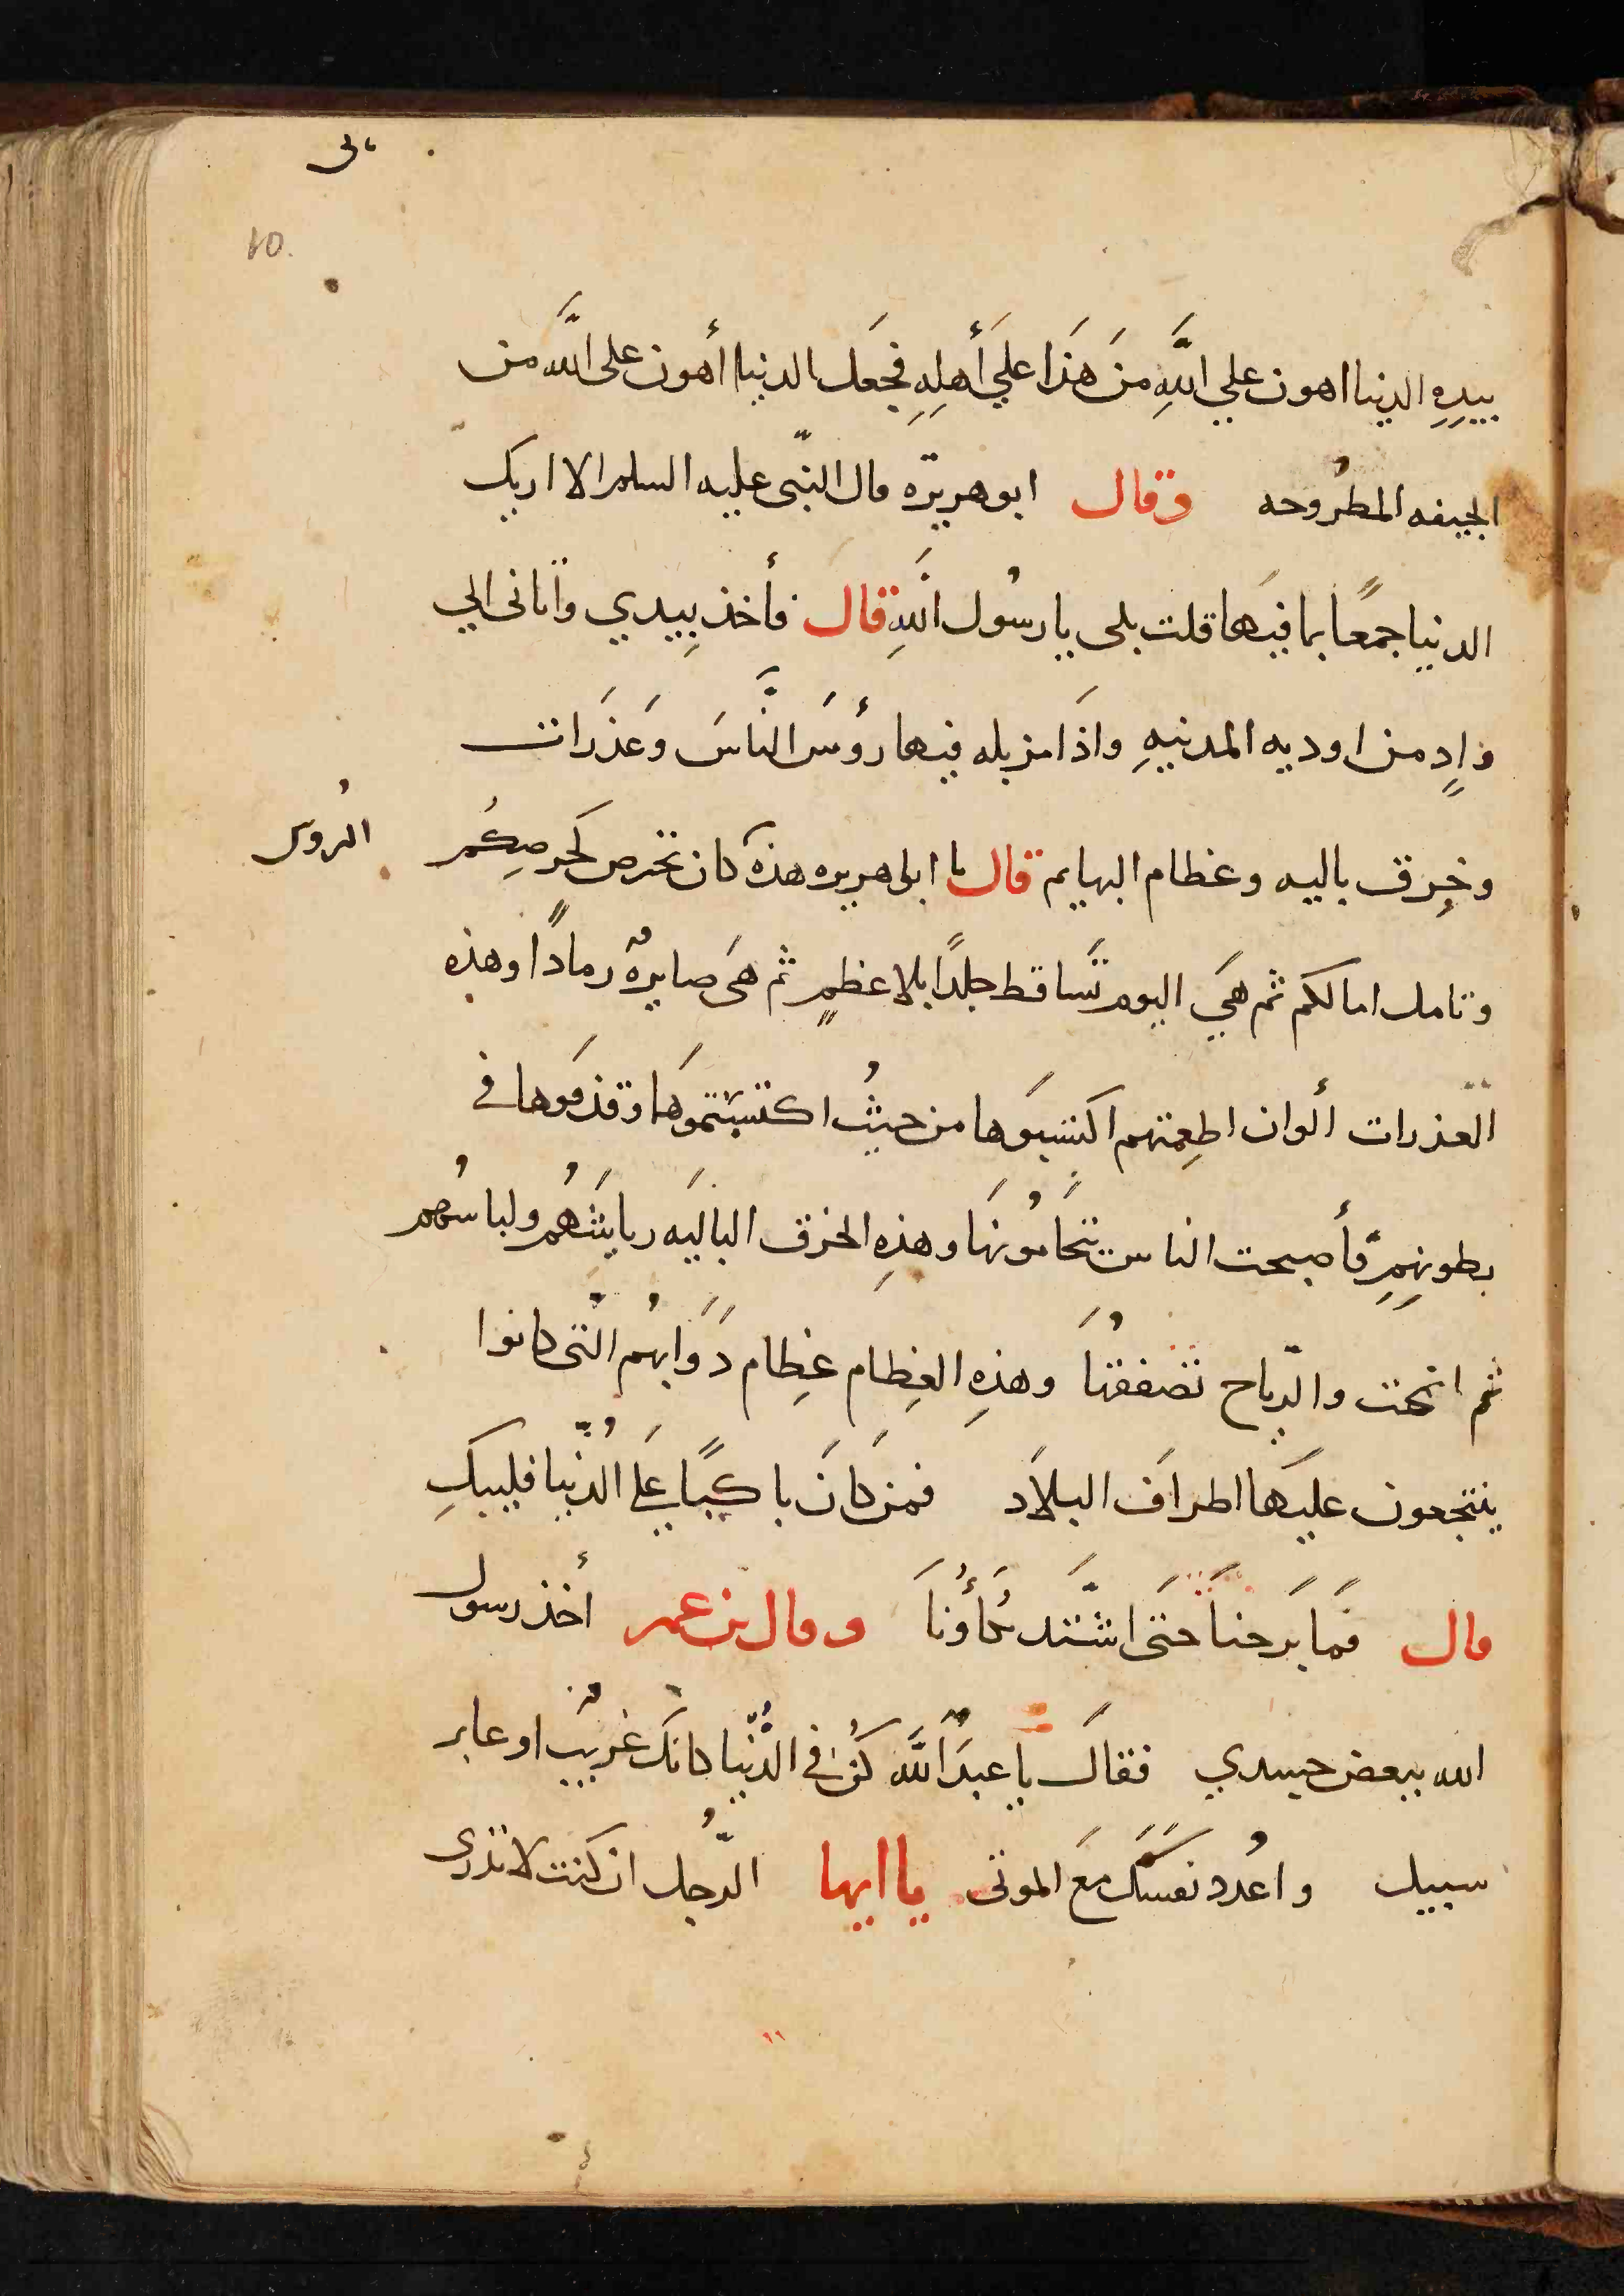 بيدِهِ الدنيا اهون علي اللَّهِ منَ هَذا علي أَهلِهِ فجَعل الدنيا أهون على اللَّه من
الجيفه المطرُوحه وقال ابو هريرّه قال النّبى عليه السلم الا اريك
الدنيا جمعًا بما فيهَا قلت بلى يا رسُول اللَّهِ قال فأخذ بِيدي واتانى الي
وادٍ من اوديه المدينهِ واذَا مزبله فيها رؤسَ النَّاسَ وَعذَرات
وخِرق باليه وعظام البهايم قال يا ابى هريره هذه كان تحرص كحرصِكُم
الرُوس
وتامل امالكم ثم هَي اليوم تَّساقط جلدًا بلا عظمٍ ثم هىَ صايرهٌ رمادًا وهذه
العذرات ألوان اطعِمتهم اكتسبوَها من حيثُ اكتسبتموهَا وقذفوها في
بطونهِمِ فأصبحت الناس تتحَامُونهَا وهذِهِ الخرق الباليَه ريايَشهُم ولباسهُم
ثم اتحت والرّياح تصفقهُا وهذِهِ العِظام عِظام دَوَابهُم التّى كانوا
ينتجعون عليهَا اطرافَ البلاَد فمن كانَ باكيًا علَى الدُّنيا فليبكِ
قال فمَا بَرحنَا حتَى اشَّتد بكَأُونَا وقال بن عمر أخذ رسول
الله ببعض جسدي فقالَ يا عبدَ اللَّه كُن في الدُّنيا كانك غريبٌ او عابر
سبيل واعُدد نفسَكَ معَ الموتى يا ايها الرّجُل ان كنت لا تدرى